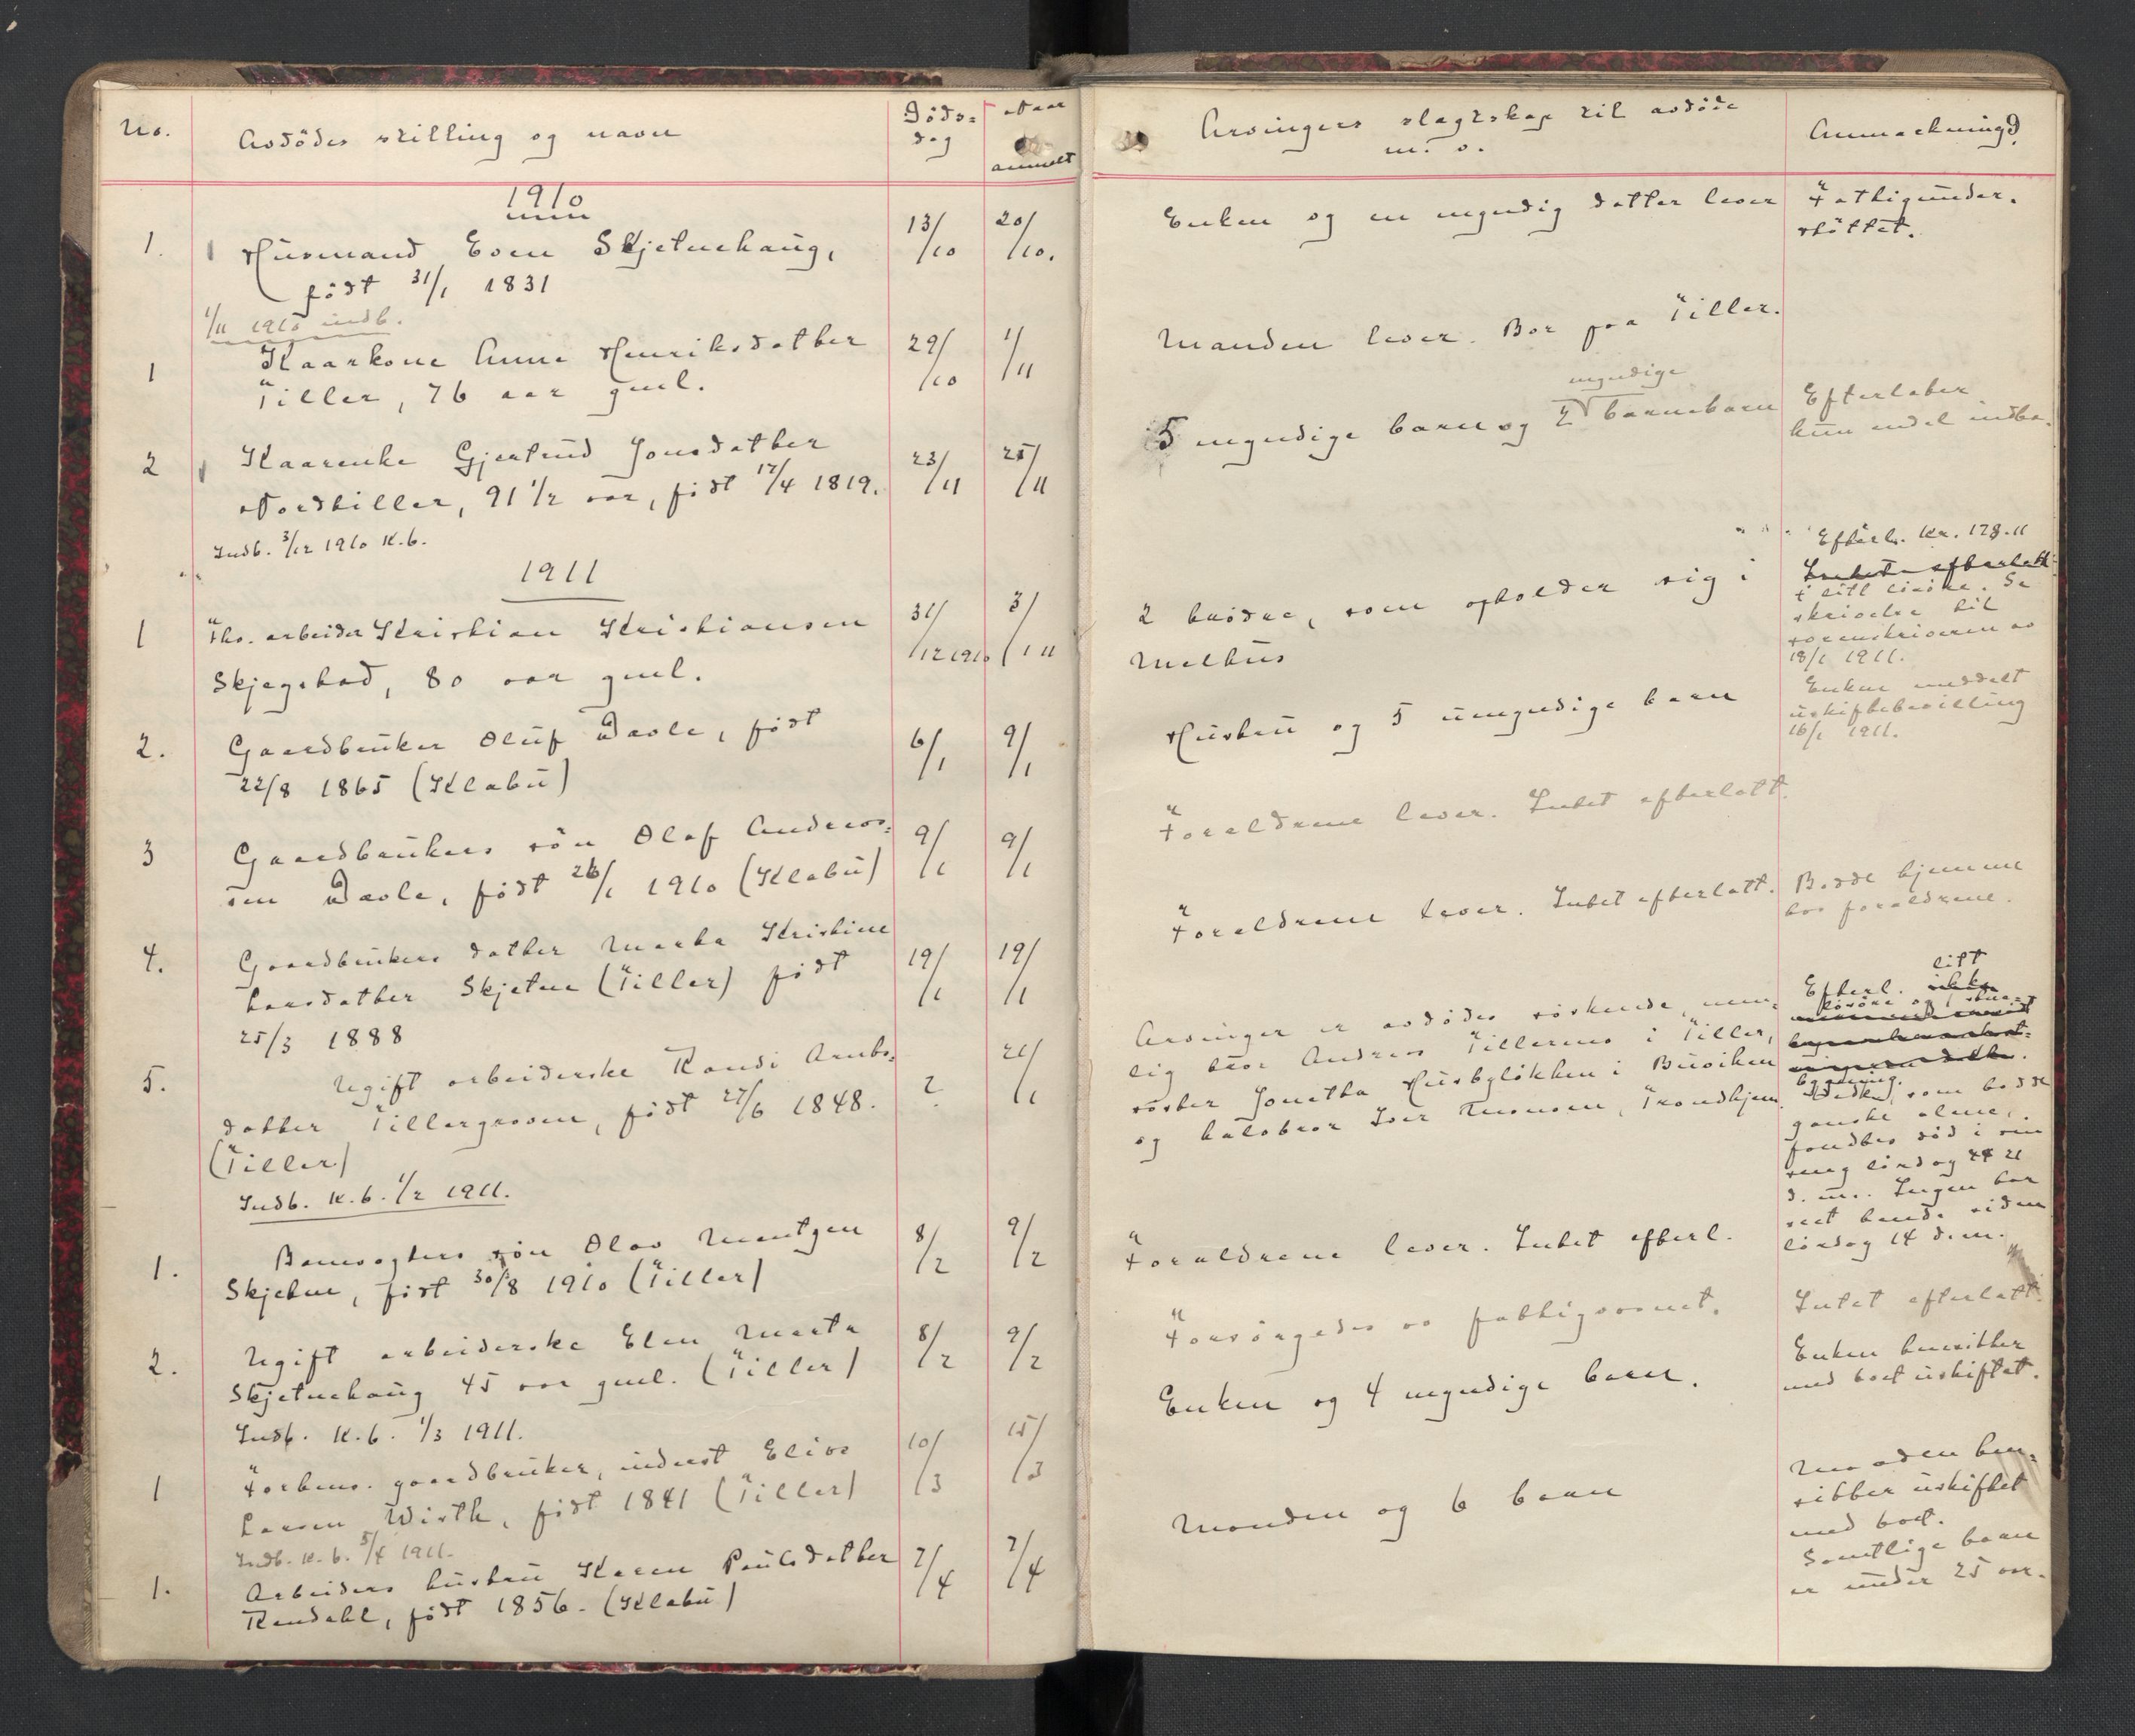 No.
Avdödes stilling og navn
Döds-
dag
Naar
anmelt
1910
1. Husmand Even Skjetnehaug, 13/10 20/10.
født 31/1 1831
1/11 1910 indb.
1 Kaarkone Anne Henriksdatter 29/10 1/11
Tiller, 76 aar gml.
2 Kaarenke Gjertrud Jonsdatter 23/11 25/11
Nordtiller, 91 1/2 aar, født 17/4 1819.
Indb. 3/12 1910 K.b.
1911
1 Fhv. arbeider Kristian Kristiansen 31/12 1910 3/1 11
Skjegstad, 80 aar gml.
2. Gaardbruker Oluf Davle, født 6/1 9/1
22/8 1865 (Klæbu)
3 Gaardbrukers sön Olaf Andreas- 9/1 9/1
sen Davle, født 26/1 1910 (Klæbu)
4. Gaardbrukers datter Marta Kristine 19/1 19/1
Larsdatter Skjetne (Tiller) født
25/3 1888
5. Ugift arbeiderske Randi Arnts- ? 21/1
datter Tillergrøven, født 27/6 1848.
(Tiller)
Indb. K.b. 1/2 1911.
1. Banevogters sön Olav Mentzen 8/2 9/2
Skjetne, født 30/8 1910 (Tiller)
2. Ugift arbeiderske Elen Marta 8/2 9/2
Skjetnehaug 45 aar gml. (Tiller)
Indb. K.b. 1/3 1911.
1 Forhenv. gaardbruker, inderst Elias 10/3 15/3
Larsen Wirth, født 1841 (Tiller)
Indb. K.b. 5/4 1911.
1. Arbeiders hustru Karen Paulsdatter 7/4 7/4
Rendahl, født 1856. (Klæbu)
Arvingers slagtskap til avdöde
m. v.
Anmerkning
Enken og en myndig datter lever
Fattigunder-
støttet.
Manden lever. Bor paa Tiller.
myndige
5 myndige barn og 2 barnebarn
Efterlater
kun endel indbo.
Efterl. Kr. 178.11
2 brödre, som opholder sig i
Melhus
Intet efterlatt
skrivelse til
sorenskriveren av
18/1 1911.
Hustru og 5 umyndige barn
Enken meddelt
uskiftebevilling
16/1 1911.
Foreldrene lever. Intet efterlatt.
Foreldrene lever. Intet efterlatt.
Bodde hjemme
hos foreldrene.
Arvinger er avdödes söskende, nem-
lig bror Andreas Tillermo i Tiller,
söster Jonetta Husbyløkken i Buviken
og halvbror Iver Tronsen, Trondhjem.
litt
Efterl. ikke
løsøre og 1 stue-
bygning.
Avdöde, som bodde
ganske alene,
fandtes död i sin
seng lördag 21
d. m. Ingen har
seet hende siden
lördag 14 d. m.
Foreldrene lever. Intet efterl.
Forsörgedes av fattigvesenet.
Intet efterlatt.
Enken og 4 myndige barn.
Enken hensitter
med boet uskiftet.
Manden og 6 barn
Manden hen-
sitter uskiftet
med boet.
Samtlige barn
er under 25 aar.